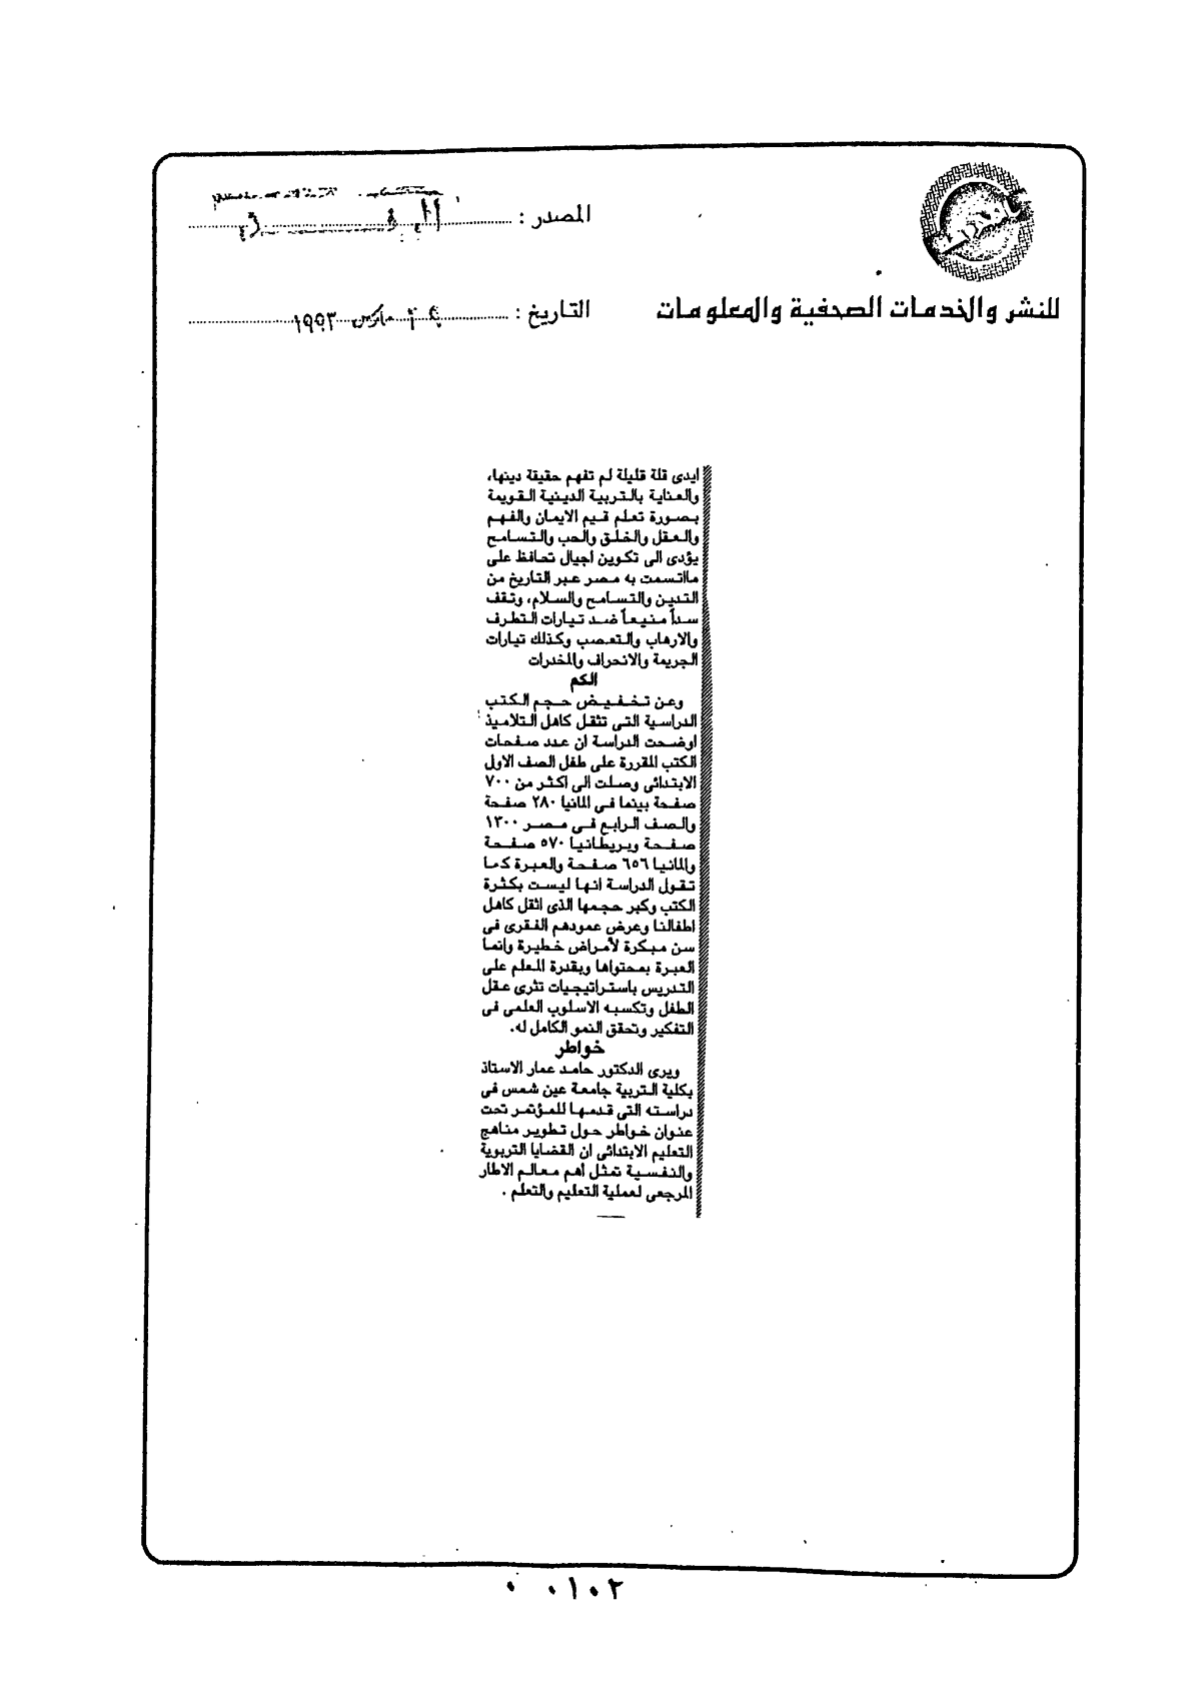 المصدر :
للنشر والخدمات الصحفية والمعلومات
التاريخ : مارس ١٩٩٣
ايدى قلة قليلة لم تفهم حقيقة دينها،
والعناية بالتربية الدينية القويمة
بصورة تعلم قيم الايمان والفهم
والعقل والخلق والحب والتسامح
يؤدى الى تكوين اجيال تحافظ على
مااتسمت به مصر عبر التاريخ من
التدين والتسامح والسلام، وتقف
سداً منيعاً ضد تيارات التطرف
والارهاب والتعصب وكذلك تيارات
الجريمة والانحراف والمخدرات
الكم
وعن تخفيض حجم الكتب
الدراسية التى تثقل كاهل التلاميذ
اوضحت الدراسة ان عدد صفحات
الكتب المقررة على طفل الصف الاول
الابتدائى وصلت الى اكثر من ٧٠٠
صفحة بينما فى المانيا ٢٨٠ صفحة
والصف الرابع فى مصر ١٣٠٠
صفحة وبريطانيا ٥٧٠ صفحة
والمانيا ٦٥٦ صفحة والعبرة كما
تقول الدراسة انها ليست بكثرة
الكتب وكبر حجمها الذى اثقل كاهل
اطفالنا وعرض عمودهم الفقرى فى
سن مبكرة لأمراض خطيرة وانما
العبرة بمحتواها وبقدرة المعلم على
التدريس باستراتيجيات تثرى عقل
الطفل وتكسبه الاسلوب العلمى فى
التفكير وتحقق النمو الكامل له.
خواطر
ويرى الدكتور حامد عمار الاستاذ
بكلية التربية جامعة عين شمس فى
دراسته التى قدمها للمؤتمر تحت
عنوان خواطر حول تطوير مناهج
التعليم الابتدائى ان القضايا التربوية
والنفسية تمثل أهم معالم الاطار
المرجعى لعملية التعليم والتعلم .
٠٠١٠٢